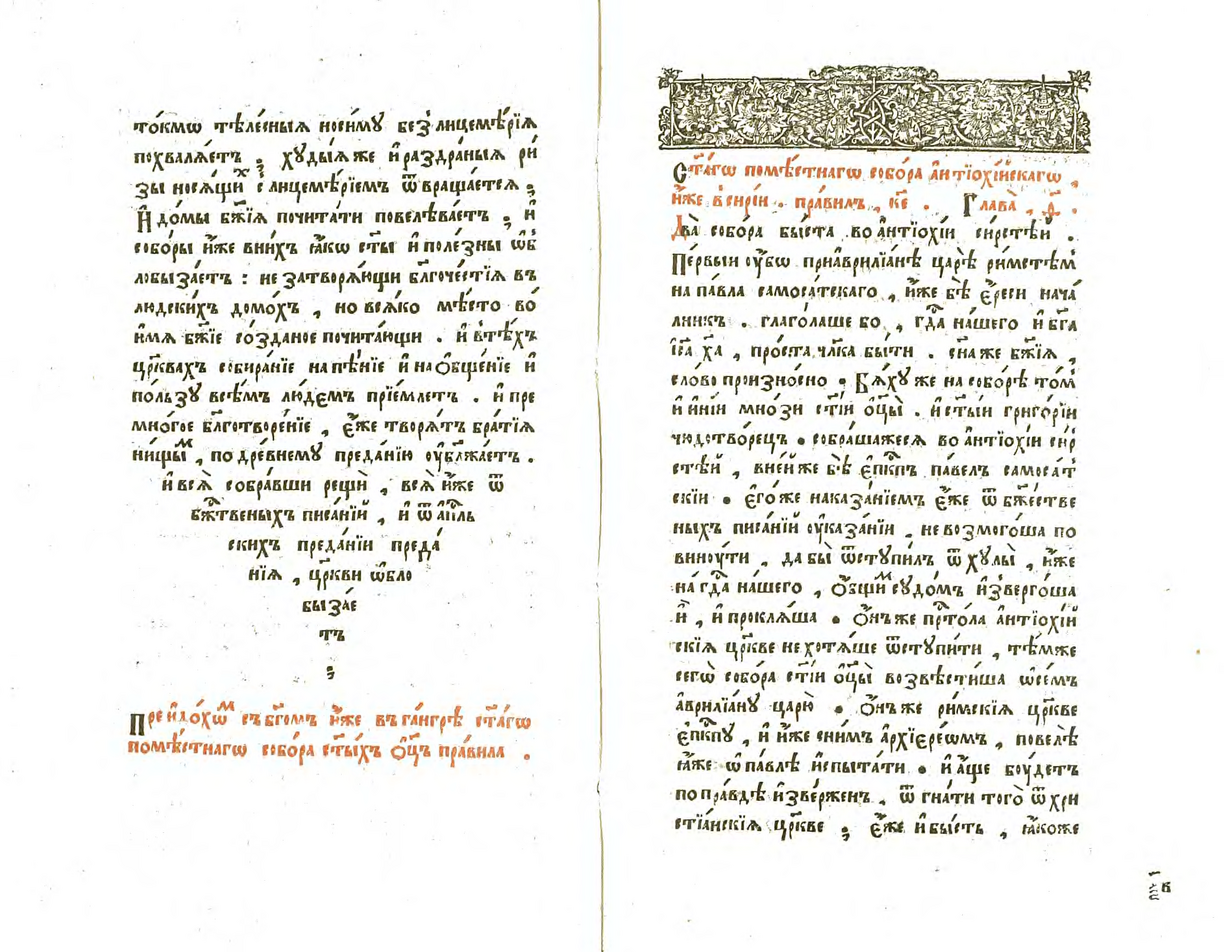 то́кмѡ тѣле́сныѧ носи́мꙋ без̾лицемѣ́рїѧ
похвалѧ́етъ . хꙋды́ѧже и҆раздра́ныѧ ри́
зы носѧ́щиⷯ с̾лицемѣ́рїемъ ѿвраща́етсѧ ;
И҆ до́мы бж҃їѧ почита́ти повелѣва́етъ , и҆
собо́ры и҆́же вни́хъ ꙗ҆́кѡ ст҃ы и҆поле́зны ѡ҆б̾
лобыза́етъ : не затворѧ́ющи бл҃гоче́стїѧ въ
людски́хъ домо́хъ , но всѧ́ко мѣ́сто во́
и҆мѧ бж҃їе со́зданое почита́ющи . и҆ втѣ́хъ
цр҃квахъ собира́нїе напѣ́нїе и҆ на о҆бще́нїе и҆
по́льзꙋ всѣ́мъ лю́демъ прїе́млетъ . и҆ пре
мно́гое бл҃готворе́нїе , є҆́же творѧ́тъ бра́тїѧ
ни́щыⷨ , по дре́внемꙋ преда́нїю оу҆бл҃жа́етъ .
и҆ всѧ̀ собра́вши рещѝ , всѧ̀ и҆́же ѿ
бж҃твеныхъ писа́нїй , и҆ ѿ а҆пⷭ҇ль
скихъ преда́нїи преда́
нїѧ , цр҃кви ѡ҆бло
быза́е
тъ
;
Преидо́хѡⷨ съ бг҃омъ и҆́же въ га́нгрѣ ст҃а́гѡ
помѣ́стнагѡ собо́ра ст҃ы́хъ о҆ц҃ъ пра́вила .
Ст҃а́гѡ помѣ́стнагѡ собо́ра а҆нтїохі́йскагѡ ,
и҆́же в̾си́рїи . пра́вилъ , к҃е . Глава̀ , ѳ҃ .
Два̀ собо́ра бы́ста . во а҆нтїохі́и си́рстѣй .
Пе́рвыи оу҆́бѡ прїаврилїа́нѣ царѣ̀ ри́мстѣⷨ
на па́вла самоса́тскаго , и҆́же бѣ̀ є҆́реси нача́
лникъ . глаго́лаше бо , гд҃а на́шего и҆ бг҃а
і҆с҃а хр҃а , про́ста чл҃ка бы́ти . сн҃а же бж҃їѧ ,
сло́во произно́сно . Бѧ́хꙋ же на собо́рѣ тоⷨ
и҆ и҆ні́и мно́зи ст҃і́и о҆ц҃ы̀ . и҆ ст҃ы́и григо́рїи
чюдотво́рецъ . собра́шажесѧ во а҆нтїохі́и си́р
стѣй , вне́йже бѣ̀ є҆пⷭ҇кпъ па́велъ самоса́т
скїи . є҆го́же наказа́нїемъ є҆́же ѿ бж҃е́стве
ныхъ писа́нїй оу҆каза́нїи , не возмого́ша по
виноу́ти , да бы̀ ѿстꙋпи́лъ ѿ хꙋлы̀ , и҆́же
на гд҃а на́шего , О҆́бщиⷨ сꙋдо́мъ и҆зверго́ша
и҆̀ , и҆ проклѧ́ша . О҆́нъже прⷭ҇то́ла а҆нтїохі́й
скїѧ цр҃кве не хотѧ́ше ѿстꙋпи́ти , тѣ́мже
сегѡ̀ собо́ра ст҃і́и о҆ц҃ы̀ возвѣсти́ша ѡ҆ се́мъ
а҆врилїа́нꙋ царю̀ . О҆́нъже ри́мскїѧ цр҃кве
є҆пⷭ҇кпꙋ , и҆ и҆́же сни́мъ а҆рхїере́ѡмъ , повелѣ̀
ꙗ҆́же ѡ҆ па́влѣ и҆спыта́ти . и҆ а҆́ще бꙋ́детъ
по пра́вдѣ и҆зве́рженъ . ѿгна́ти того̀ ѿ хри
стїа́нскїѧ цр҃кве ; є҆́же и҆ бы́сть , ꙗ҆́коже